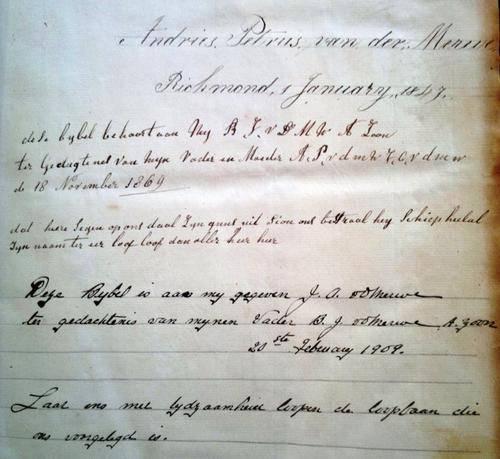 Andries Petrus van der Merwe
Richmond, 1 January, 1847.
dese bybel behoort aan My B J v D M W A Zoon
ter Gedagtenet van myn Vader en Moeder A. P. v d m W C. O. v d m w
de 18 November 1869
dat here Segen op ons daal Zyn guns uit Sion ons bestraal hey Schiep heelal
Zyn naam ter eer loof loof dan aller heer heer
Deze Bybel is aan my gegeven J. A. vd Merwe
ter gedachtenis van mynen Vader B. J. vd Merwe A. zoon
20ste February 1909.
Laat ons met lydzaamheid loopen de loopbaan die
ons voorgelegd is.